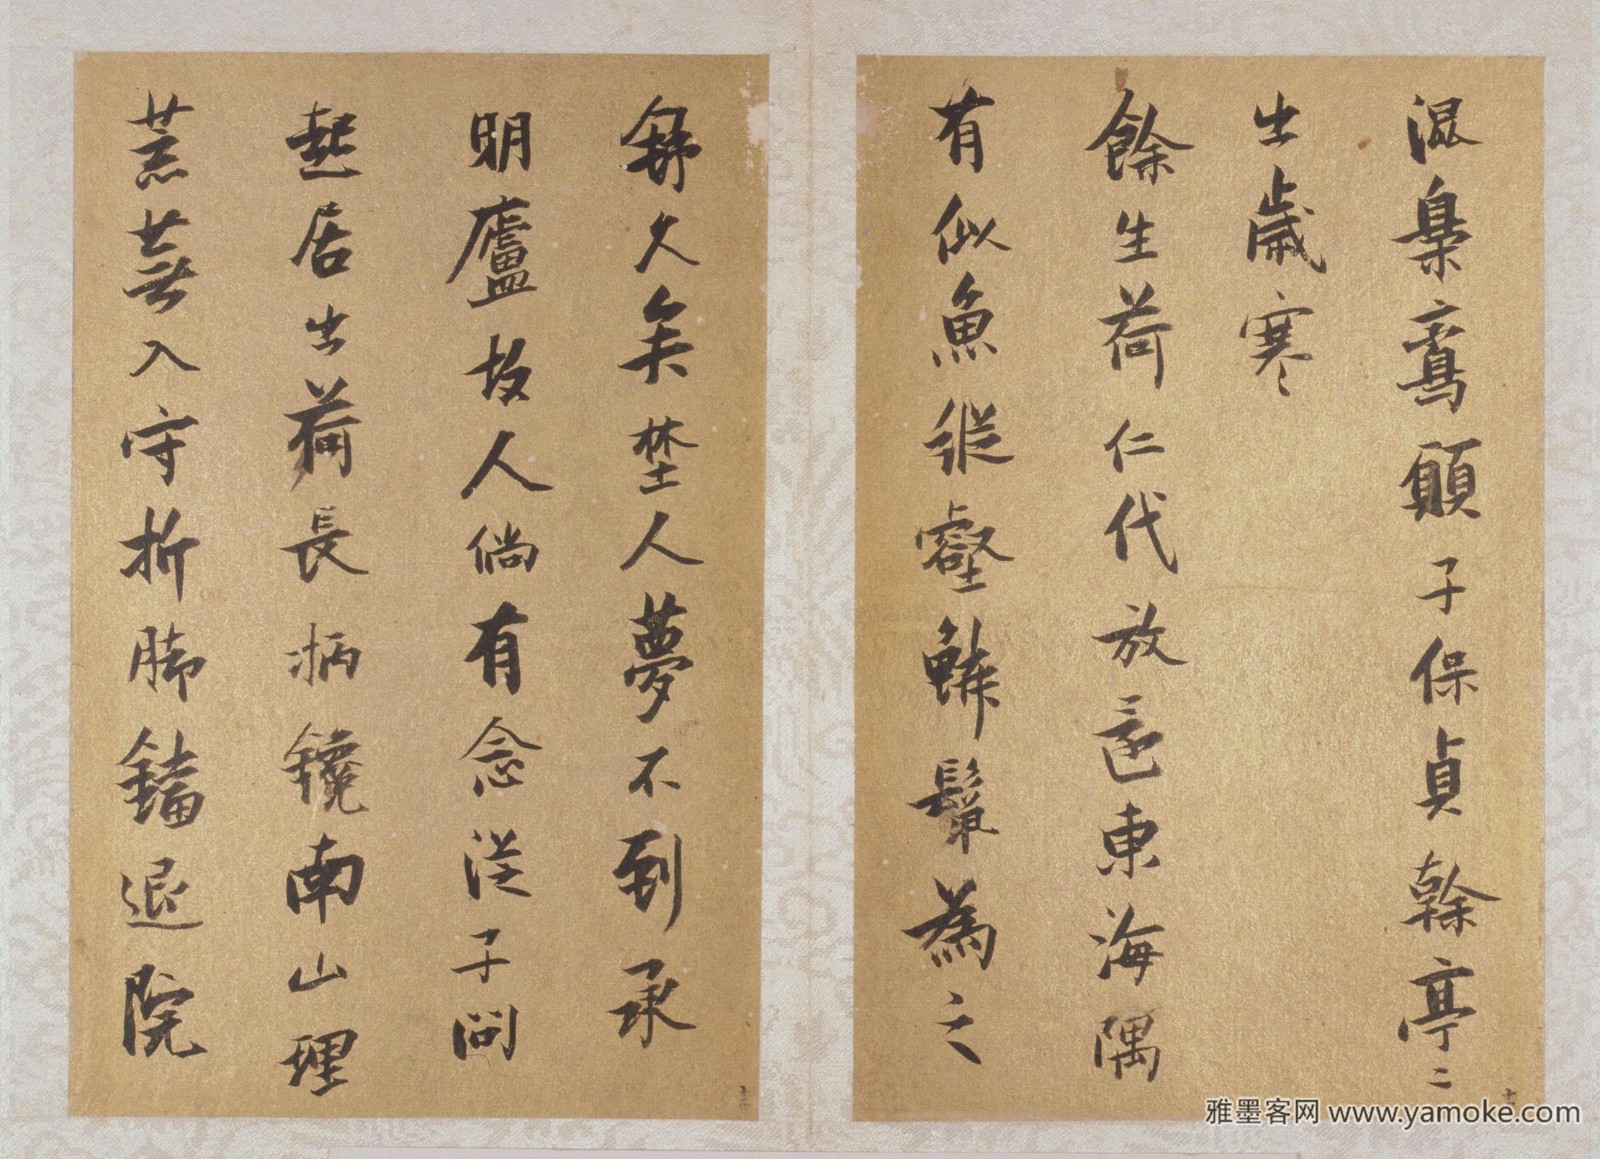 混梟鸞願子保貞幹亭〻
出歲寒
餘生荷仁代放逐東海隅
有似魚縱壑鱗鬐為之
舒久矣埜人夢不到承
明廬故人倘有念從子問
起居出荷長柄鑱南山理
荒蕪入守折腳鐺退院
雅墨客网 www.yamoke.com